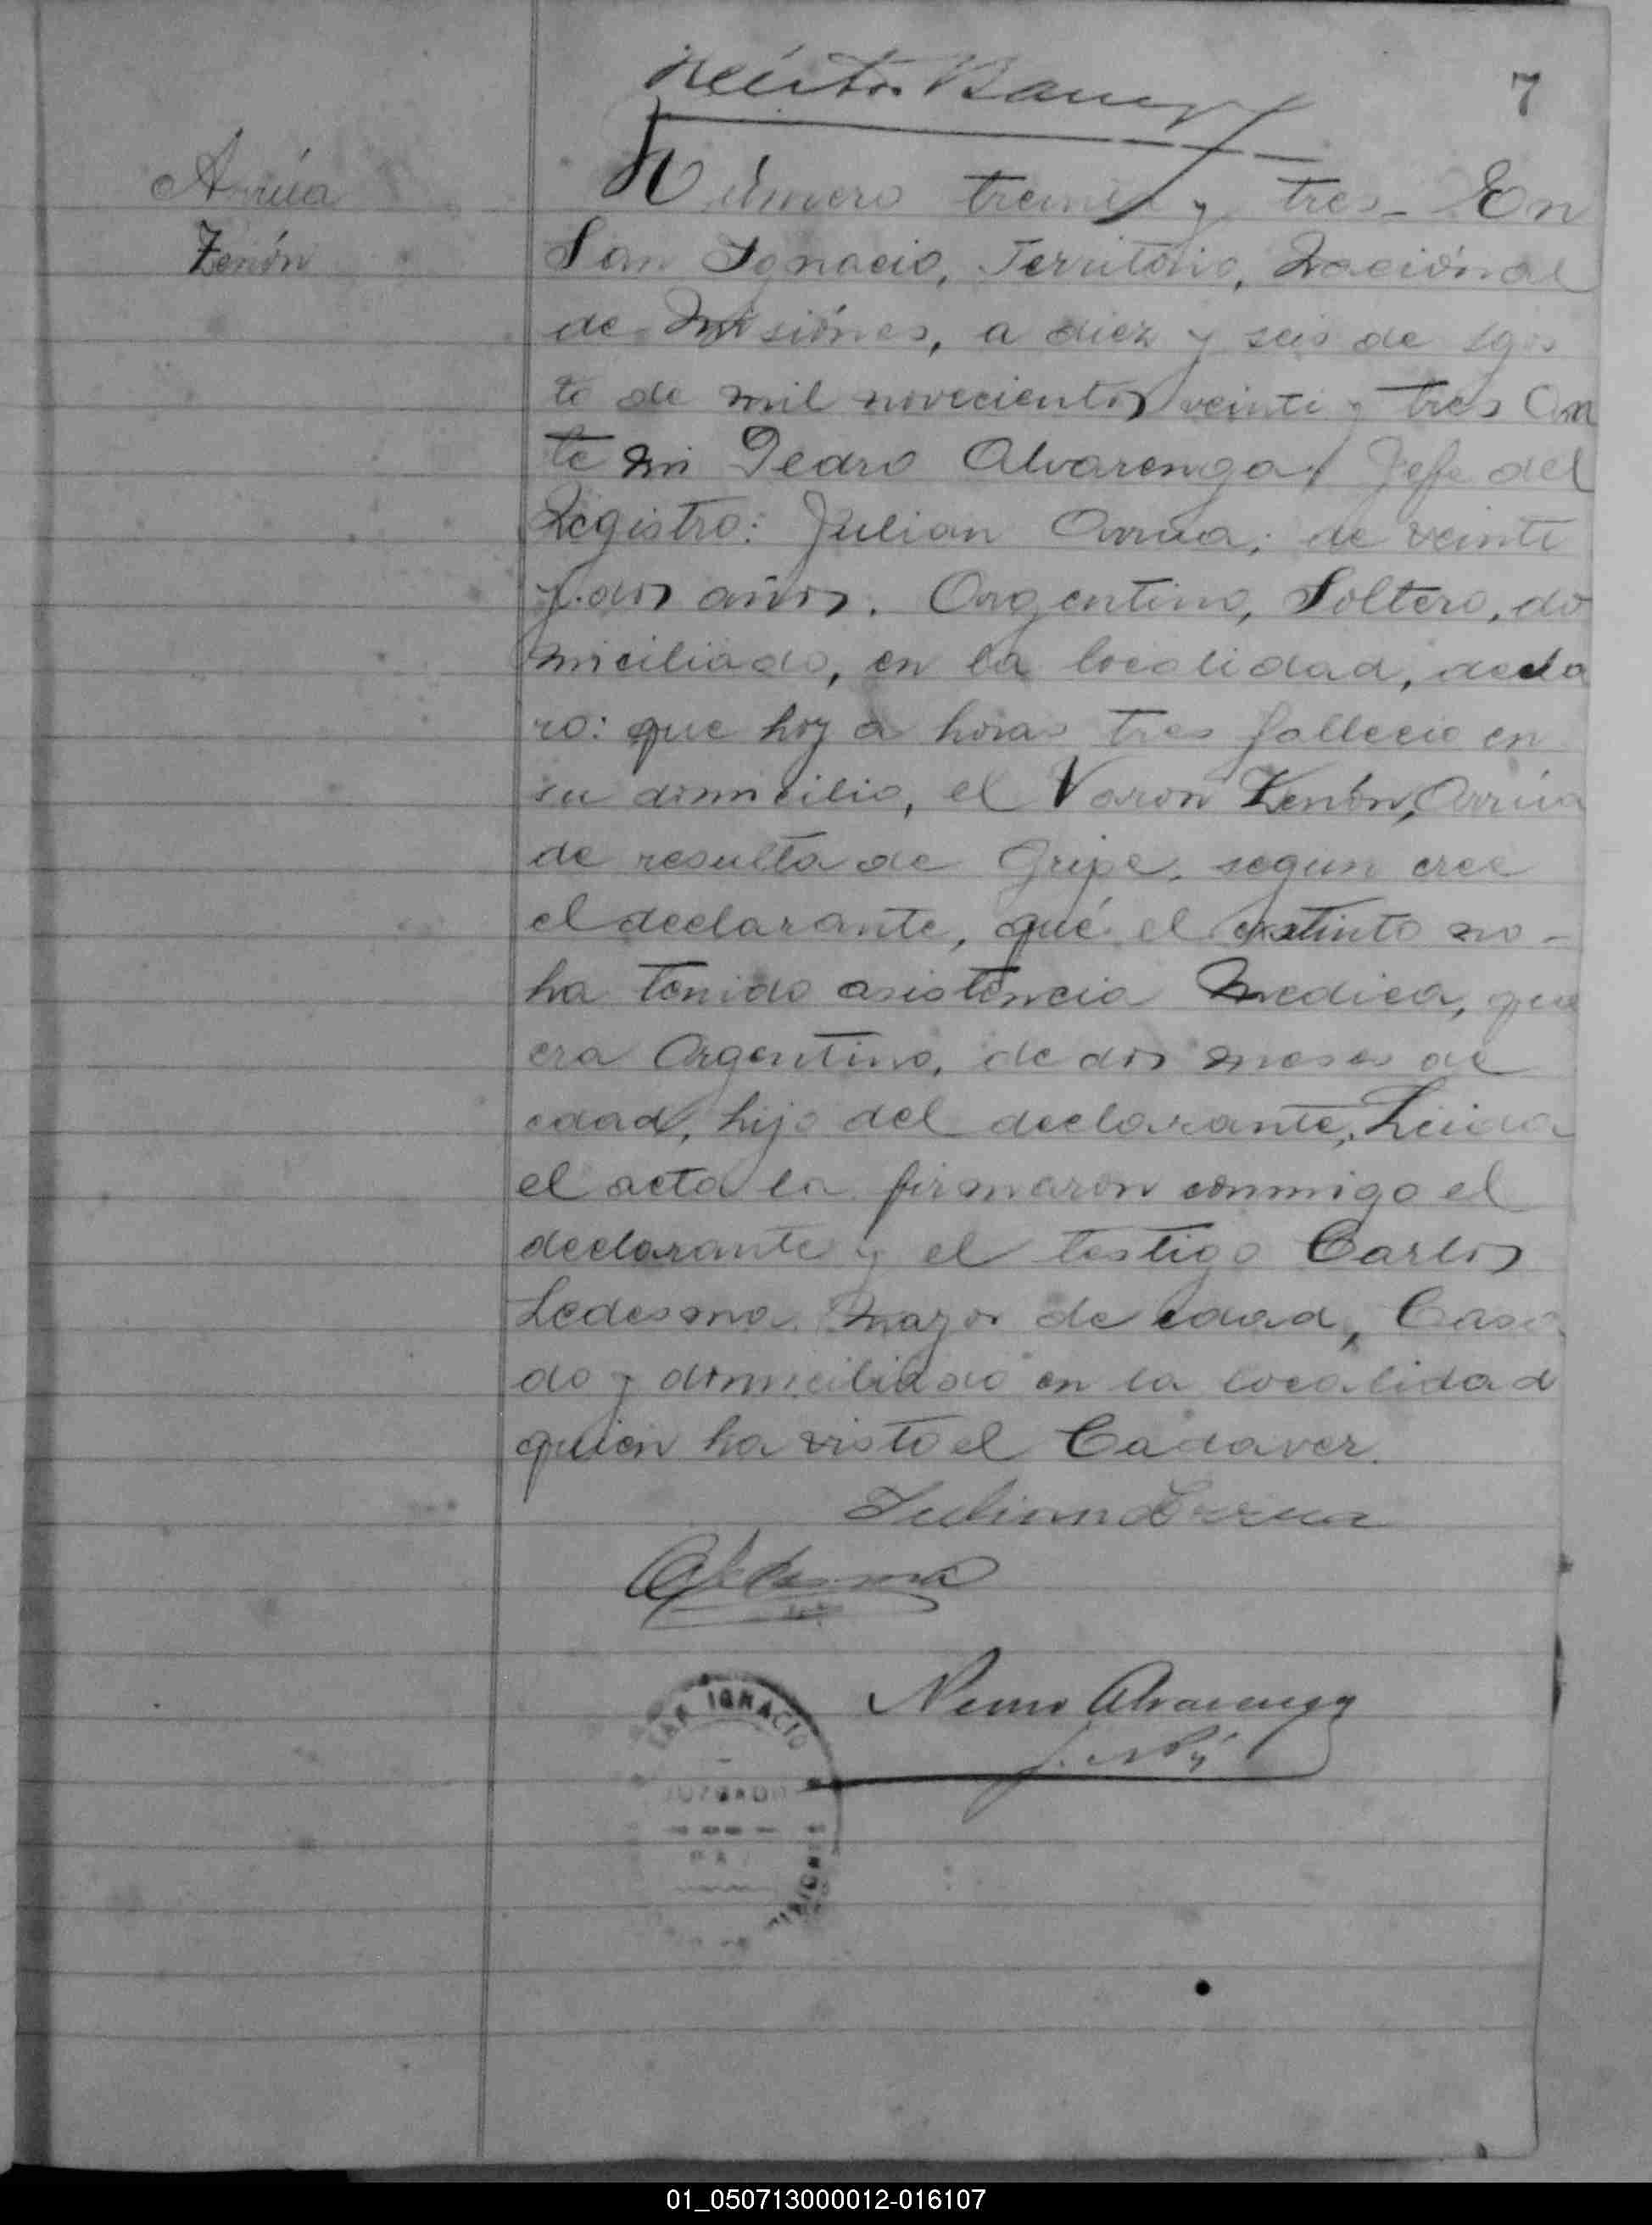 7
Arrúa
Zenón
Número treinta y tres - En
San Ignacio, Territorio, Nacional
de Misiónes, a diez y seis de Agos
to de mil novecientos veinti y tres An
te mi Pedro Alvarenga, Jefe del
Registro: Julian Arrua; de veinti
y dos años. Argentino, Soltero, do
miciliado, en la localidad, decla
ro: que hoy a horas tres fallecio en
su domicilio, el Varon Zenón, Arrúa
de resulta de Gripe, segun cree
el declarante, qué el extinto no -
ha tenido asistencia Medica, que
era Argentino, de dos meses de
edad, hijo del declarante, Leida
el acta la firmaron conmigo el
declarante y el testigo Carlos
Ledesma mayor de edad, Casa
do y domiciliado en la localidad
quien ha visto el Cadaver.
Julian Arrua
Ledesma
Alvarenga
SAN IGNACIO
JUZGADO
MISIONES
01_050713000012-016107